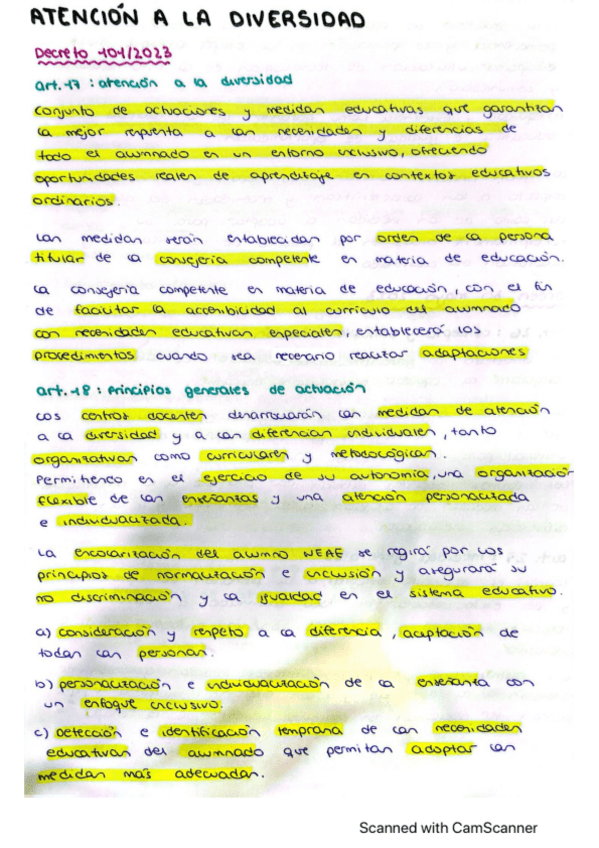 ATENCIÓN A LA DIVERSIDAD
Decreto 101/2023
art. 17 : atención a la diversidad
Conjunto de actuaciones y medidas educativas que garantizan
la mejor respuesta a las necesidades y diferencias de
todo el alumnado en un entorno inclusivo, ofreciendo
oportunidades reales de aprendizaje en contextos educativos
ordinarios.
Las medidas serán establecidas por orden de la persona
titular de la consejería competente en materia de educación.
La consejería competente en materia de educación, con el fin
de facilitar la accesibilidad al currículo del alumnado
con necesidades educativas especiales, establecerá los
procedimientos cuando sea necesario realizar adaptaciones
art. 18 : Principios generales de actuación
Los centros docentes desarrollarán las medidas de atención
a la diversidad y a las diferencias individuales, tanto
organizativas como curriculares y metodológicas.
Permitiendo en el ejercicio de su autonomía, una organización
flexible de las enseñanzas y una atención personalizada
e individualizada.
La escolarización del alumno NEAE se regirá por los
principios de normalización e inclusión y asegurará su
no discriminación y la igualdad en el sistema educativo.
a) consideración y respeto a la diferencia, aceptación de
todas las personas.
b) personalización e individualización de la enseñanza con
un enfoque inclusivo.
c) Detección e identificación temprana de las necesidades
educativas del alumnado que permitan adoptar las
medidas más adecuadas.
Scanned with CamScanner